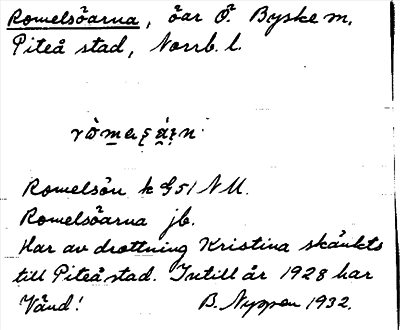 Romelsöarna, öar Ö. Byske m,
Piteå stad, Norrb. l.
Romelsön k G51 NU.
Romelsöarna jb.
Har av drottning Kristina skänkts
till Piteå stad. Intill år 1928 har
Vänd! B. Nyppen 1932.